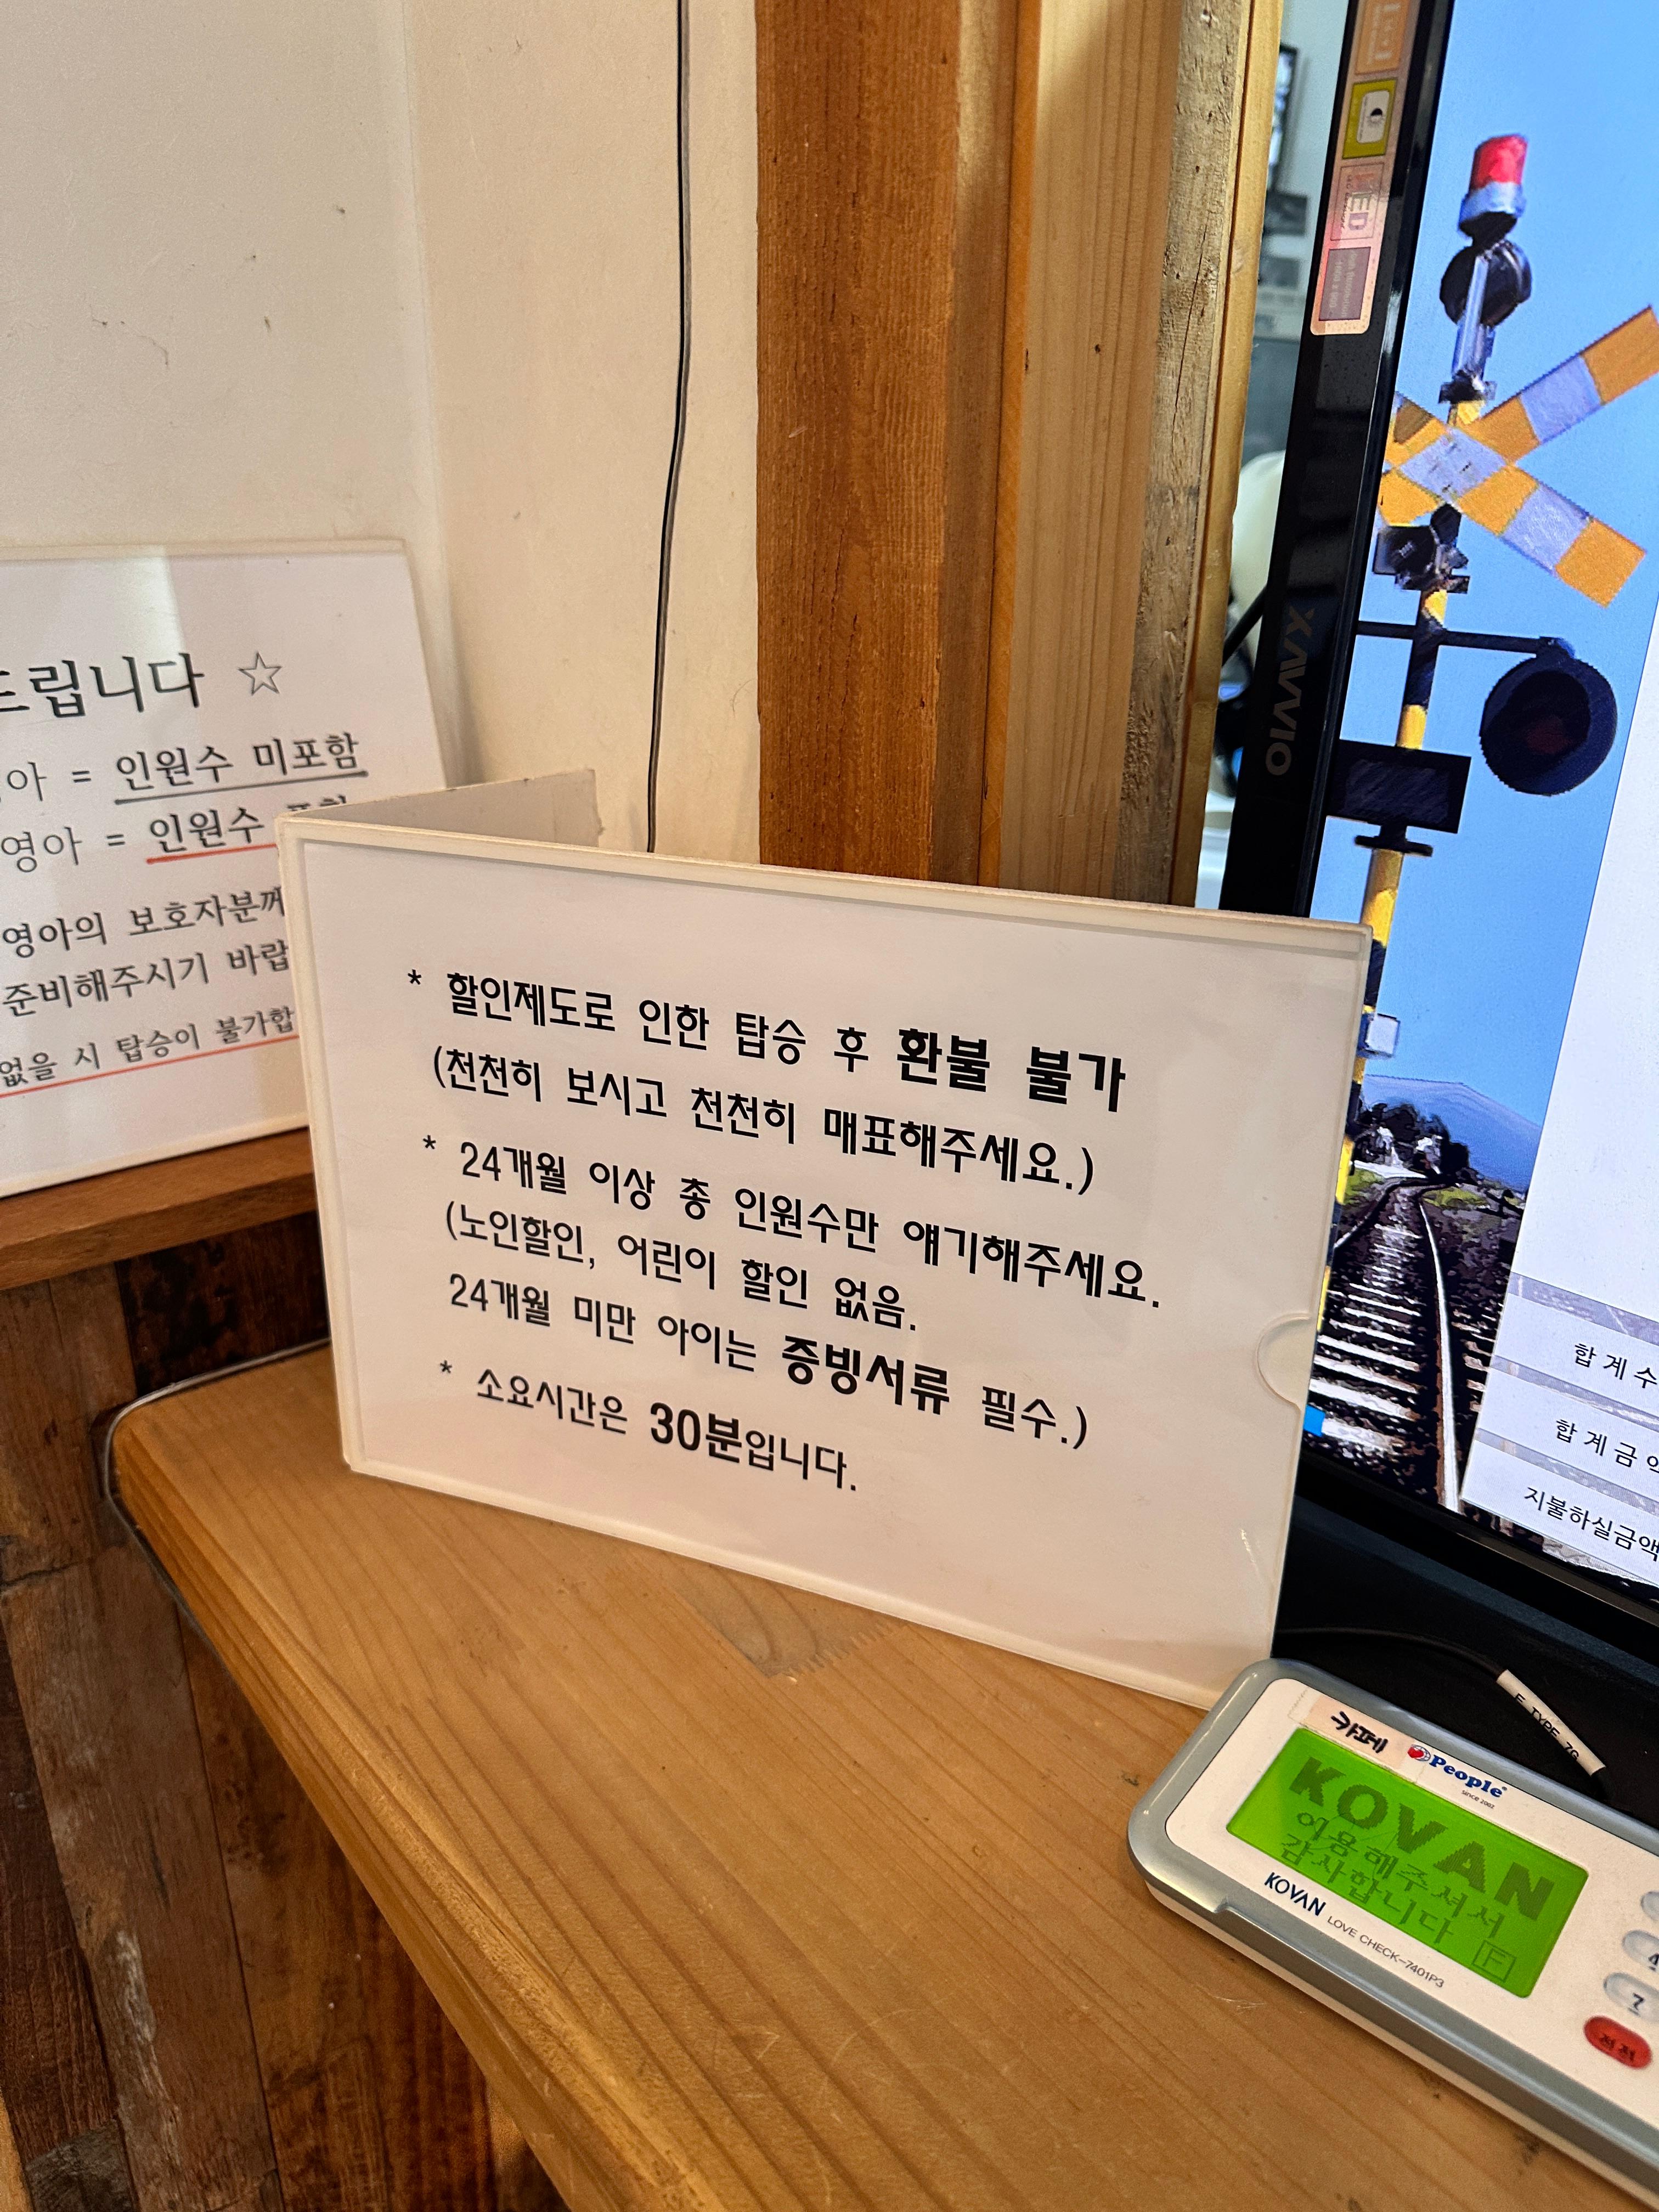 드립니다 ☆
아 = 인원수 미포함
영아 = 인원수
영아의 보호자분께
준비해주시기 바랍
없을 시 탑승이 불가합
* 할인제도로 인한 탑승 후 환불 불가
(천천히 보시고 천천히 매표해주세요.)
* 24개월 이상 총 인원수만 얘기해주세요.
(노인할인, 어린이 할인 없음.
24개월 미만 아이는 증빙서류 필수.)
* 소요시간은 30분입니다.
XAVVIO
합 계 수
합 계 금 액
지불하실금액
카페
People
since 2002
KOVAN
이용해주셔서
감사합니다 F
KOVAN LOVE CHECK-7401P3
4
7